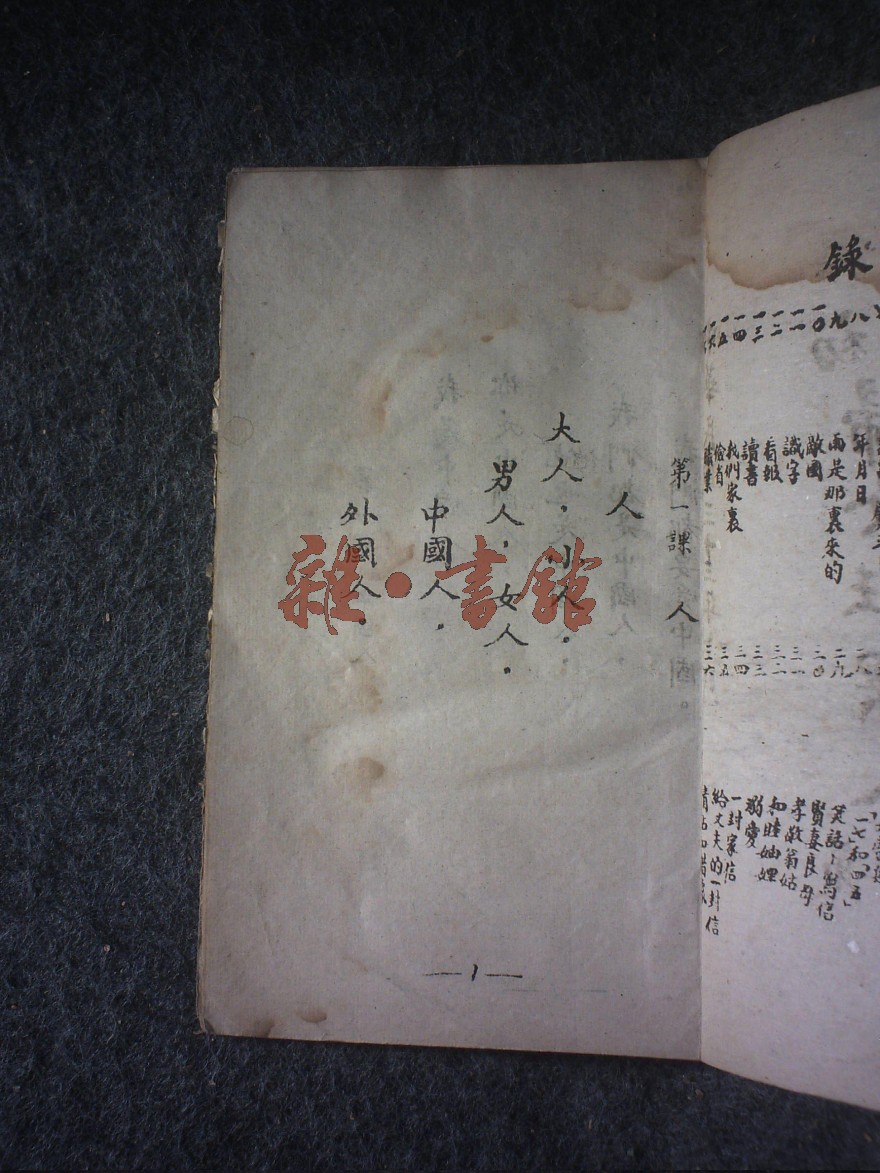 錄
八 年月日 二八
九 而是那裏來的 二九
一〇 敵國 三〇
一一 識字 三一
一二 看報 三二
一三 讀書 三三
一四 我們家裏 三四
一五 三五
一六 職業 三六
「七和「四五」
笑話:寫信
賢妻良母
孝敬翁姑
和睦妯娌
溺愛
一封家信
給丈夫的一封信
第一課 人
人
大人,小人.
男人,女人.
中國人,
外國人.
—1—
雜·書館